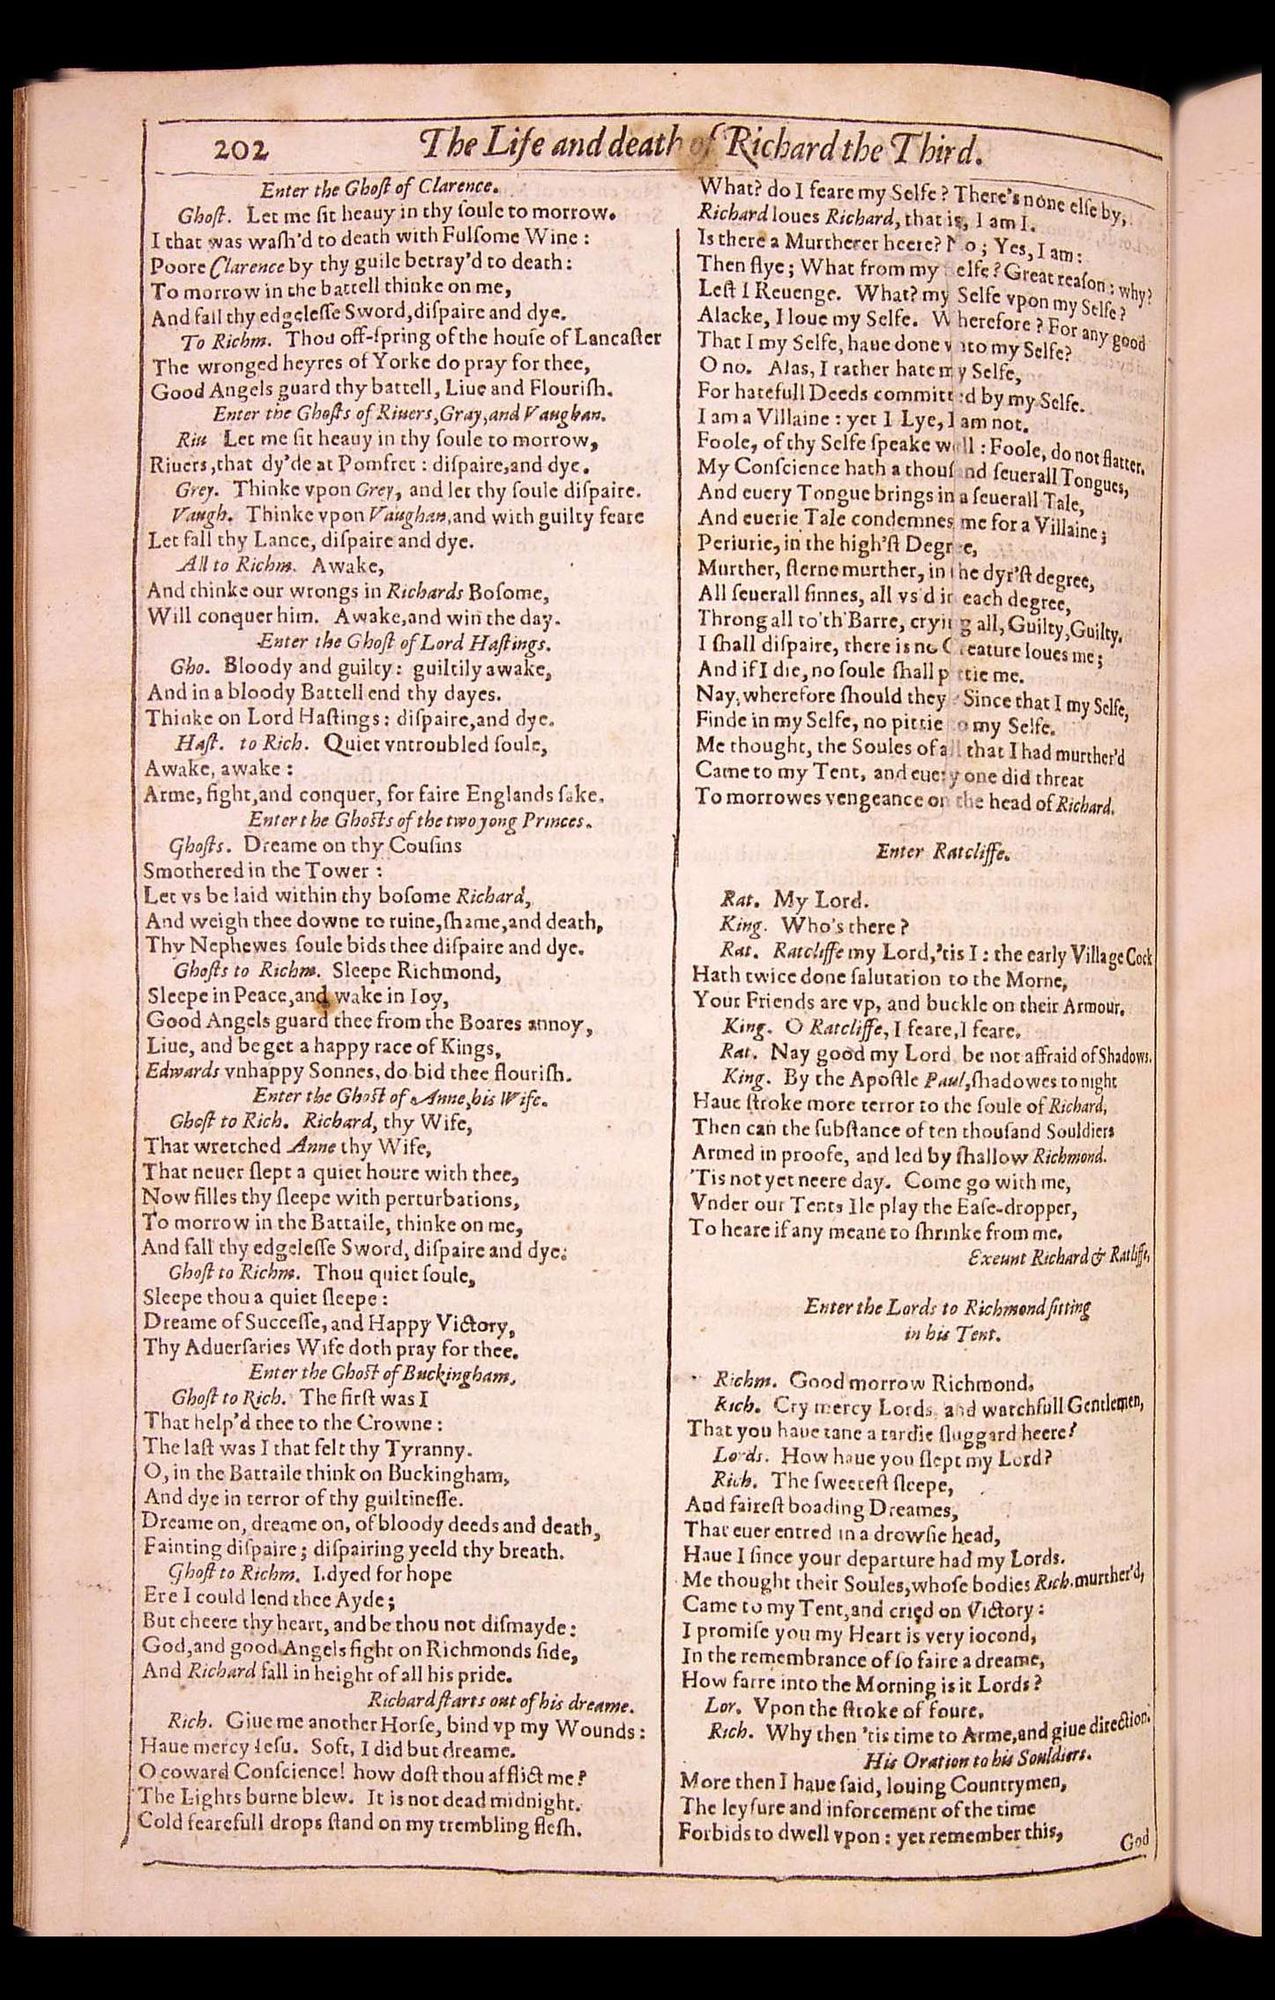 202
The Life and death of Richard the Third.
Enter the Ghoſt of Clarence.
Ghoſt. Let me ſit heauy in thy ſoule to morrow.
I that was waſh'd to death with Fulſome Wine:
Poore Clarence by thy guile betray'd to death:
To morrow in the battell thinke on me,
And fall thy edgeleſſe Sword, diſpaire and dye.
To Richm. Thou off-ſpring of the houſe of Lancaſter
The wronged heyres of Yorke do pray for thee,
Good Angels guard thy battell, Liue and Flouriſh.
Enter the Ghoſts of Riuers, Gray, and Vaughan.
Riu Let me ſit heauy in thy ſoule to morrow,
Riuers, that dy'de at Pomfret: diſpaire, and dye.
Grey. Thinke vpon Grey, and let thy ſoule diſpaire.
Vaugh. Thinke vpon Vaughan, and with guilty feare
Let fall thy Lance, diſpaire and dye.
All to Richm. Awake,
And thinke our wrongs in Richards Boſome,
Will conquer him. Awake, and win the day.
Enter the Ghoſt of Lord Haſtings.
Gho. Bloody and guilty: guiltily awake,
And in a bloody Battell end thy dayes.
Thinke on Lord Haſtings: diſpaire, and dye.
Haſt. to Rich. Quiet vntroubled ſoule,
Awake, awake:
Arme, fight, and conquer, for faire Englands ſake.
Enter the Ghoſts of the two yong Princes.
Ghoſts. Dreame on thy Couſins
Smothered in the Tower:
Let vs be laid within thy boſome Richard,
And weigh thee downe to ruine, ſhame, and death,
Thy Nephewes ſoule bids thee diſpaire and dye.
Ghoſts to Richm. Sleepe Richmond,
Sleepe in Peace, and wake in Ioy,
Good Angels guard thee from the Boares annoy,
Liue, and beget a happy race of Kings,
Edwards vnhappy Sonnes, do bid thee flouriſh.
Enter the Ghoſt of Anne, his Wife.
Ghoſt to Rich. Richard, thy Wife,
That wretched Anne thy Wife,
That neuer ſlept a quiet houre with thee,
Now filles thy ſleepe with perturbations,
To morrow in the Battaile, thinke on me,
And fall thy edgeleſſe Sword, diſpaire and dye:
Ghoſt to Richm. Thou quiet ſoule,
Sleepe thou a quiet ſleepe:
Dreame of Succeſſe, and Happy Victory,
Thy Aduerſaries Wife doth pray for thee.
Enter the Ghoſt of Buckingham.
Ghoſt to Rich. The firſt was I
That help'd thee to the Crowne:
The laſt was I that felt thy Tyranny.
O, in the Battaile think on Buckingham,
And dye in terror of thy guiltineſſe.
Dreame on, dreame on, of bloody deeds and death,
Fainting diſpaire; diſpairing yeeld thy breath.
Ghoſt to Richm. I dyed for hope
Ere I could lend thee Ayde;
But cheere thy heart, and be thou not diſmayde:
God, and good Angels fight on Richmonds ſide,
And Richard fall in height of all his pride.
Richard ſtarts out of his dreame.
Rich. Giue me another Horſe, bind vp my Wounds:
Haue mercy Ieſu. Soft, I did but dreame.
O coward Conſcience! how doſt thou afflict me?
The Lights burne blew. It is not dead midnight.
Cold fearefull drops ſtand on my trembling fleſh.
What? do I feare my Selfe? There's none elſe by,
Richard loues Richard, that is, I am I.
Is there a Murtherer heere? No; Yes, I am:
Then flye; What from my Selfe? Great reaſon: why?
Leſt I Reuenge. What? my Selfe vpon my Selfe?
Alacke, I loue my Selfe. Wherefore? For any good
That I my Selfe, haue done vnto my Selfe?
O no. Alas, I rather hate my Selfe,
For hatefull Deeds committed by my Selfe.
I am a Villaine: yet I Lye, I am not.
Foole, of thy Selfe ſpeake well: Foole, do not flatter.
My Conſcience hath a thouſand ſeuerall Tongues,
And euery Tongue brings in a ſeuerall Tale,
And euerie Tale condemnes me for a Villaine;
Periurie, in the high'ſt Degree,
Murther, ſterne murther, in the dyr'ſt degree,
All ſeuerall ſinnes, all vs'd in each degree,
Throng all to'th'Barre, crying all, Guilty, Guilty.
I ſhall diſpaire, there is no Creature loues me;
And if I die, no ſoule ſhall pittie me.
Nay, wherefore ſhould they? Since that I my Selfe,
Finde in my Selfe, no pittie to my Selfe.
Me thought, the Soules of all that I had murther'd
Came to my Tent, and euery one did threat
To morrowes vengeance on the head of Richard.
Enter Ratcliffe.
Rat. My Lord.
King. Who's there?
Rat. Ratcliffe my Lord, 'tis I: the early Village Cock
Hath twice done ſalutation to the Morne,
Your Friends are vp, and buckle on their Armour.
King. O Ratcliffe, I feare, I feare.
Rat. Nay good my Lord, be not affraid of Shadows.
King. By the Apoſtle Paul, ſhadowes to night
Haue ſtroke more terror to the ſoule of Richard,
Then can the ſubſtance of ten thouſand Souldiers
Armed in proofe, and led by ſhallow Richmond.
'Tis not yet neere day. Come go with me,
Vnder our Tents Ile play the Eaſe-dropper,
To heare if any meane to ſhrinke from me.
Exeunt Richard & Ratliffe,
Enter the Lords to Richmond ſitting
in his Tent.
Richm. Good morrow Richmond.
Rich. Cry mercy Lords, and watchfull Gentlemen,
That you haue tane a tardie ſluggard heere?
Lords. How haue you ſlept my Lord?
Rich. The ſweeteſt ſleepe,
And faireſt boading Dreames,
That euer entred in a drowſie head,
Haue I ſince your departure had my Lords.
Me thought their Soules, whoſe bodies Rich. murther'd,
Came to my Tent, and cried on Victory:
I promiſe you my Heart is very iocond,
In the remembrance of ſo faire a dreame,
How farre into the Morning is it Lords?
Lor. Vpon the ſtroke of foure.
Rich. Why then 'tis time to Arme, and giue direction.
His Oration to his Souldiers.
More then I haue ſaid, louing Countrymen,
The leyſure and inforcement of the time
Forbids to dwell vpon: yet remember this,
God